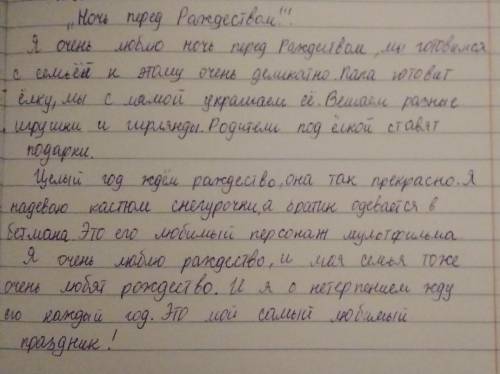 „Ночь перед Рождеством"!!
Я очень люблю ночь перед Рождеством, мы готовимся
с семьёй к этому очень деликатно. Папа готовит
ёлку, мы с мамой украшаем её. Вешаем разные
игрушки и гирлянды. Родители под ёлкой ставят
подарки.
Целый год ждём раждество, она так прекрасно. Я
надеваю кастюм снегурочки, а братик одевается в
бетмана. Это его любимый персонаж мультфильма
Я очень люблю раждество, и мая семья тоже
очень любят рождество. И я с нетерпением жду
его каждый год. Это мой самый любимый
праздник!